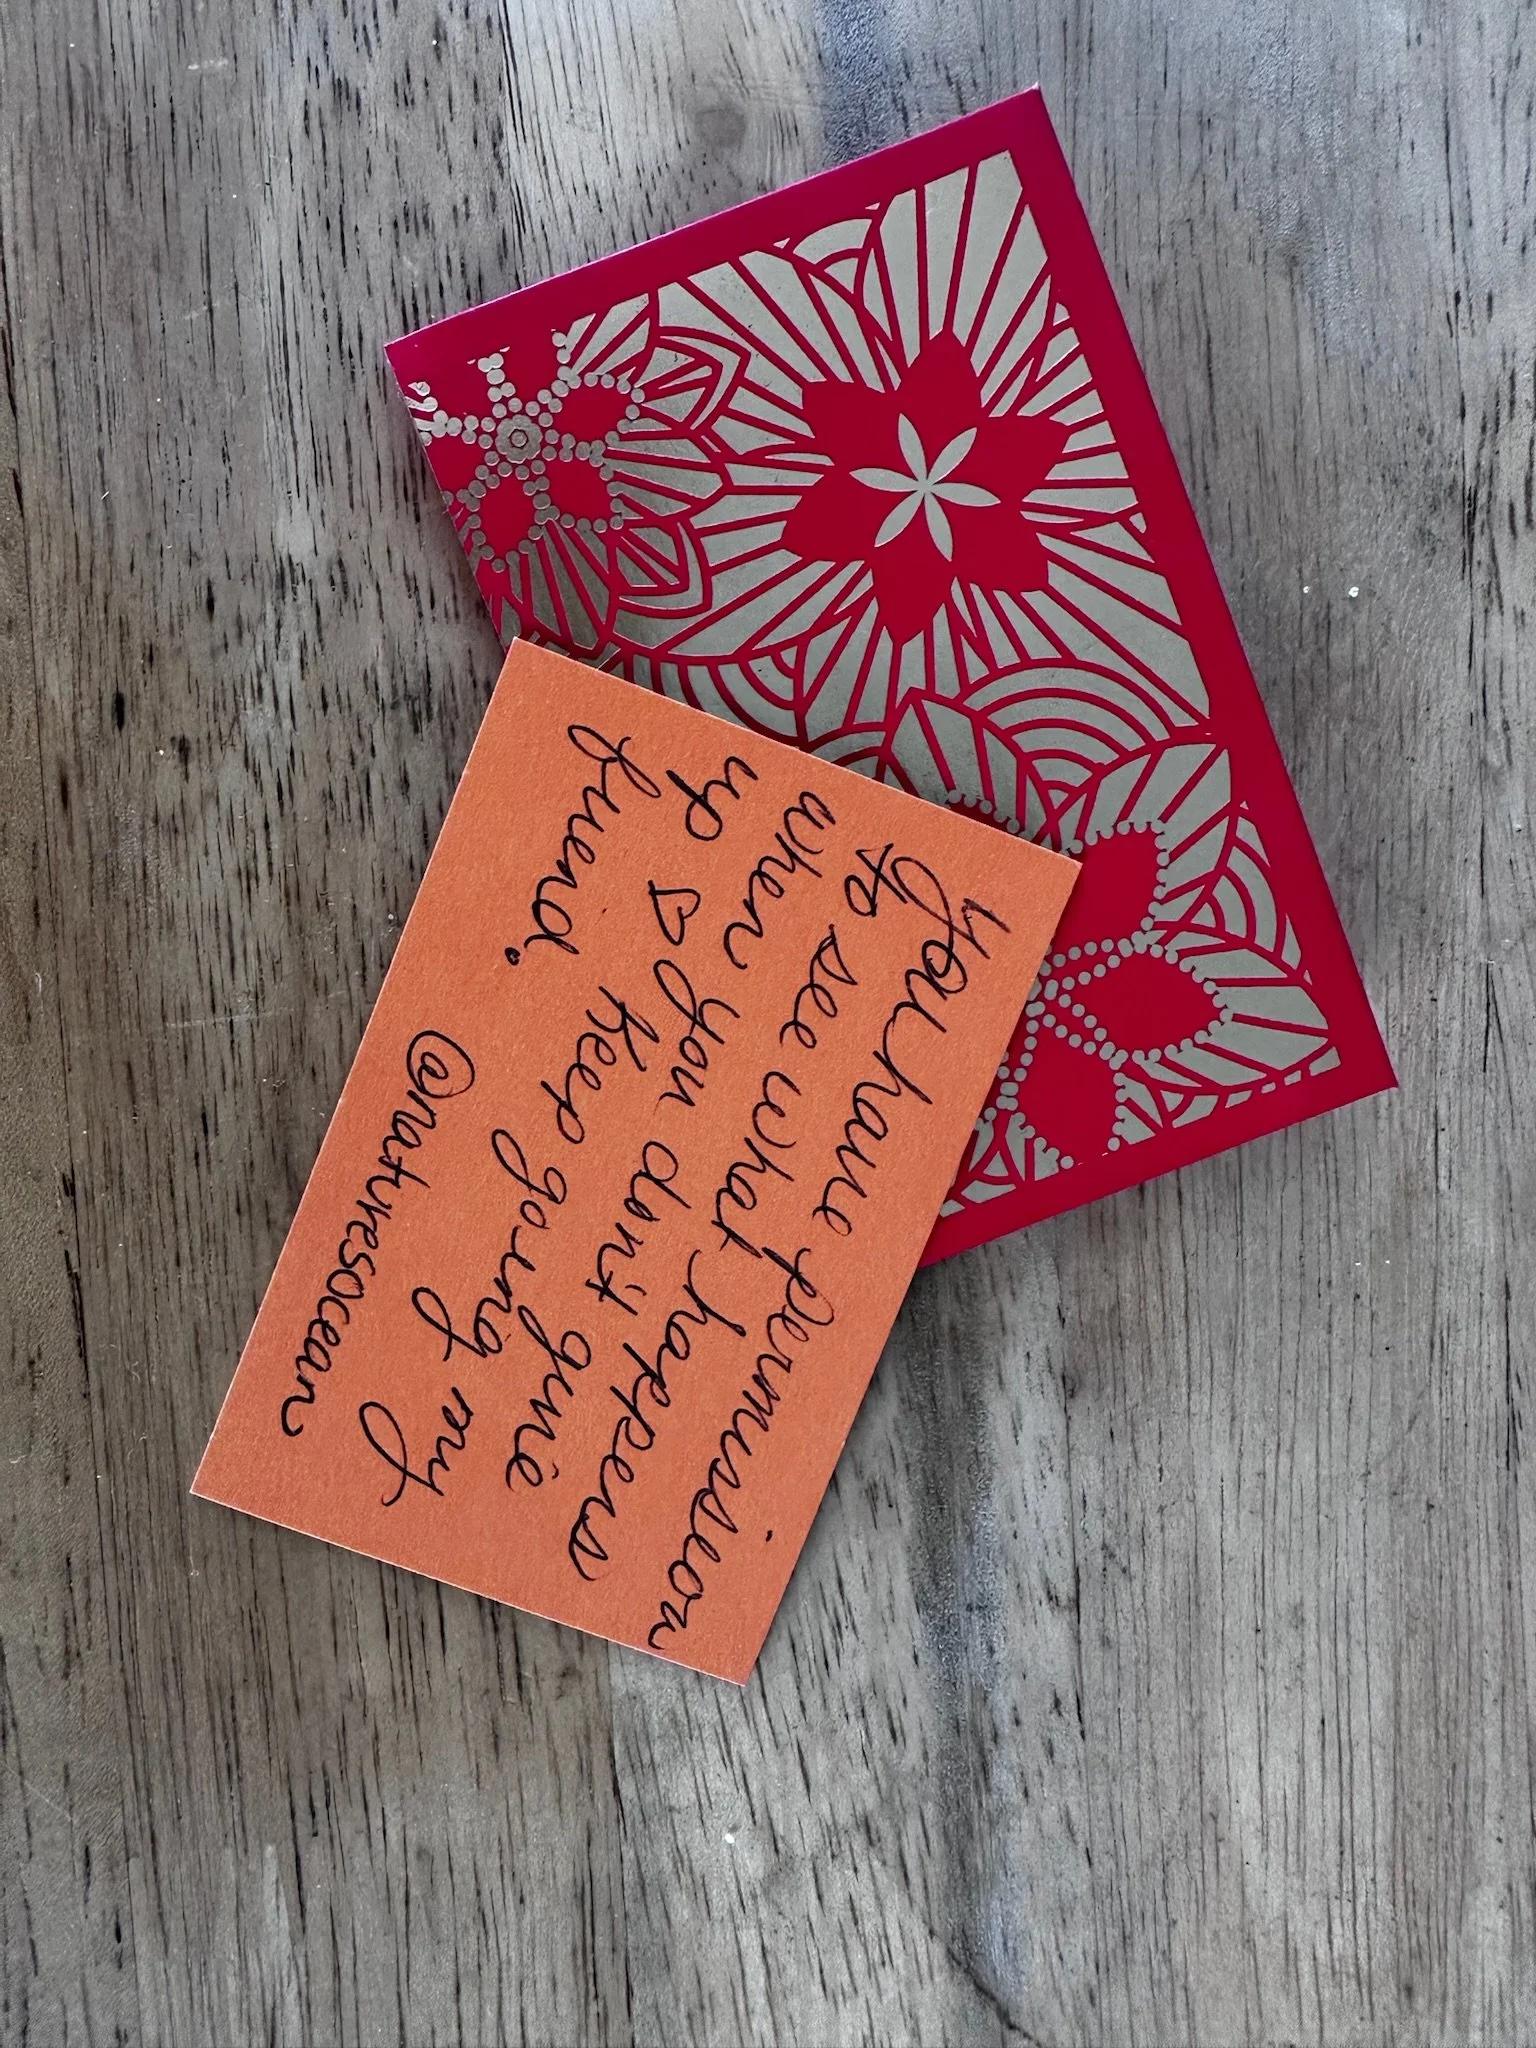 You have permission
to see what happens
when you don't give
up ♡ Keep going my
friend.
@naturesocean